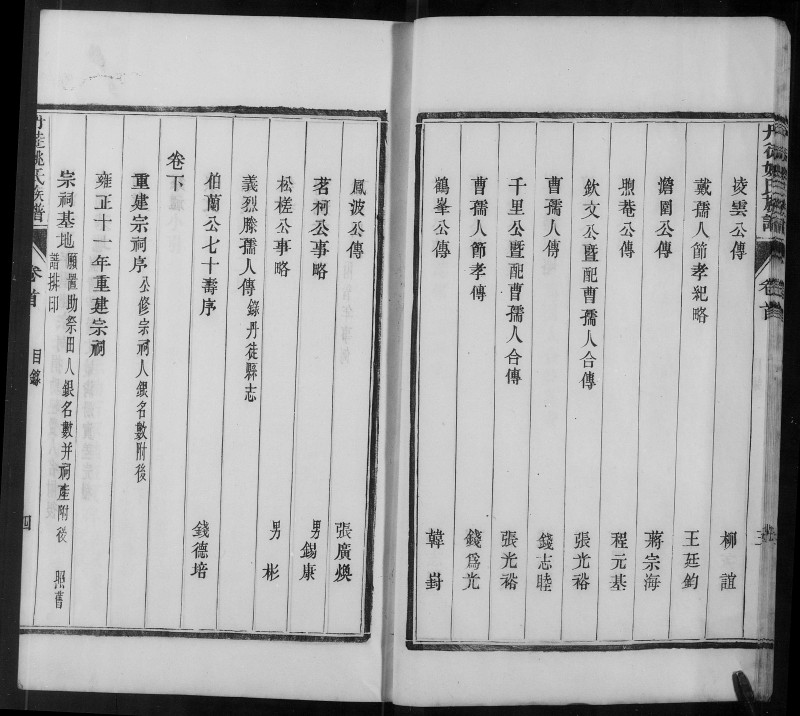 丹徒姚氏族譜
卷首
三
凌雲公傳 柳誼
戴孺人節孝紀略 王廷鈞
澹園公傳 蔣宗海
煦菴公傳 程元基
欽文公暨配曹孺人合傳 張光裕
曹孺人傳 錢志睦
千里公暨配曹孺人合傳 張光裕
曹孺人節孝傳 錢為光
鶴峯公傳 韓崶
鳳波公傳 張廣煥
茗柯公事略 男錫康
松槎公事略 男彬
義烈滕孺人傳 錄丹徒縣志
伯蘭公七十壽序 錢德培
卷下
重建宗祠序 公修宗祠人銀名數附後
雍正十一年重建宗祠
宗祠基地 願置助祭田人銀名數并祠產附後 照舊譜排印
丹徒姚氏族譜
卷首
目錄
四